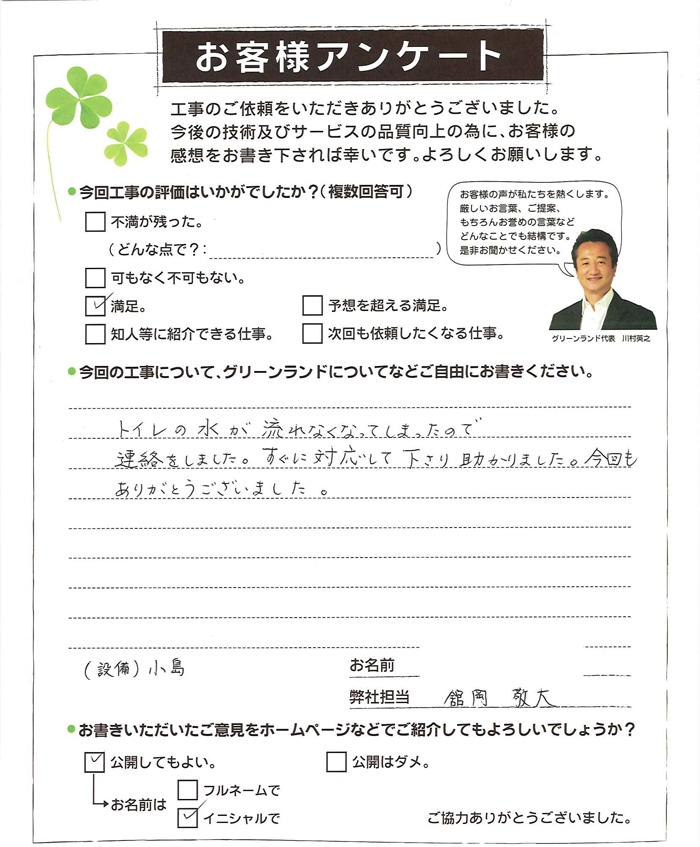 お客様アンケート
工事のご依頼をいただきありがとうございました。
今後の技術及びサービスの品質向上の為に、お客様の
感想をお書き下されば幸いです。よろしくお願いします。
●今回工事の評価はいかがでしたか？（複数回答可）
不満が残った。
（どんな点で？：　　　）
可もなく不可もない。
満足。
予想を超える満足。
知人等に紹介できる仕事。
次回も依頼したくなる仕事。
お客様の声が私たちを熱くします。
厳しいお言葉、ご提案、
もちろんお誉めの言葉など
どんなことでも結構です。
是非お聞かせください。
グリーンランド代表　川村英之
●今回の工事について、グリーンランドについてなどご自由にお書きください。
トイレの水が流れなくなってしまったので
連絡をしました。すぐに対応して下さり助かりました。今回も
ありがとうございました。
(設備)小島
お名前
弊社担当　舘岡　敬大
●お書きいただいたご意見をホームページなどでご紹介してもよろしいでしょうか？
公開してもよい。
公開はダメ。
お名前は
フルネームで
イニシャルで
ご協力ありがとうございました。